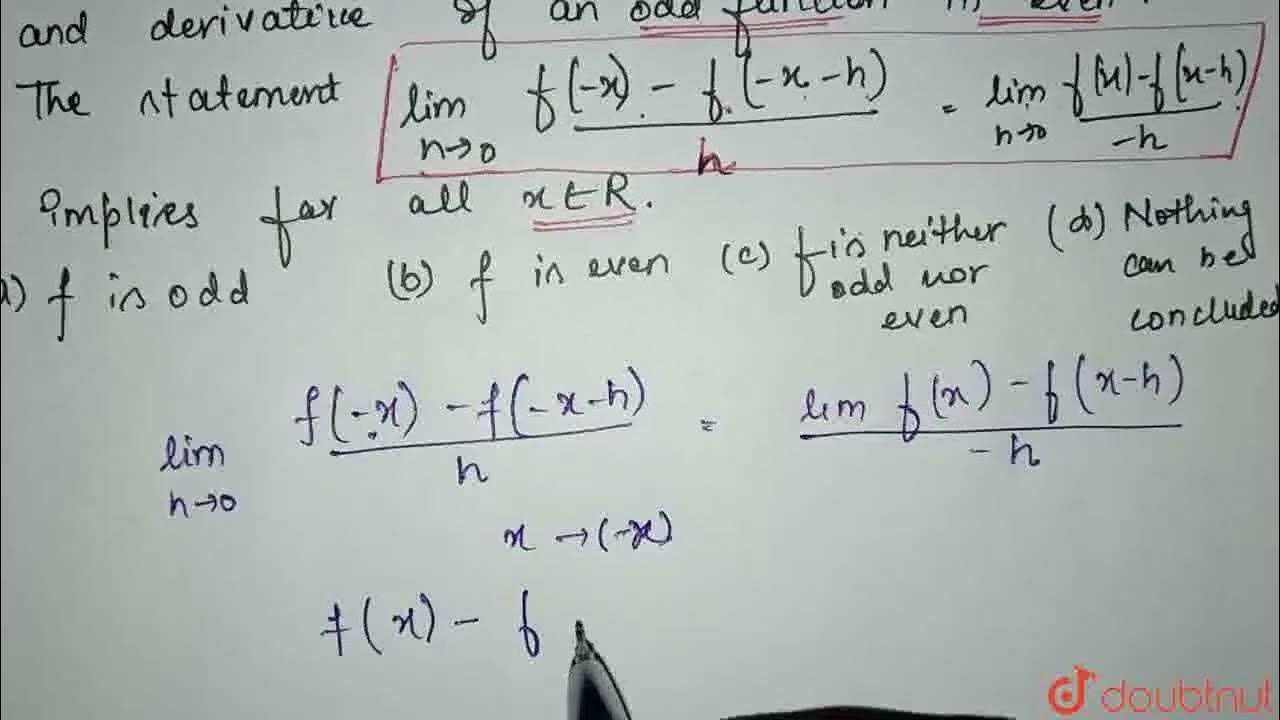 and derivative of an odd function is even.
The statement lim h→0 f(-x) - f(-x-h) / h = lim h→0 f(x) - f(x-h) / -h
implies for all x∈R.
a) f is odd (b) f is even (c) f is neither odd nor even (d) Nothing can be concluded
lim h→0 f(-x) - f(-x-h) / h = lim f(x) - f(x-h) / -h
x → (-x)
f(x) - f
doubtnut